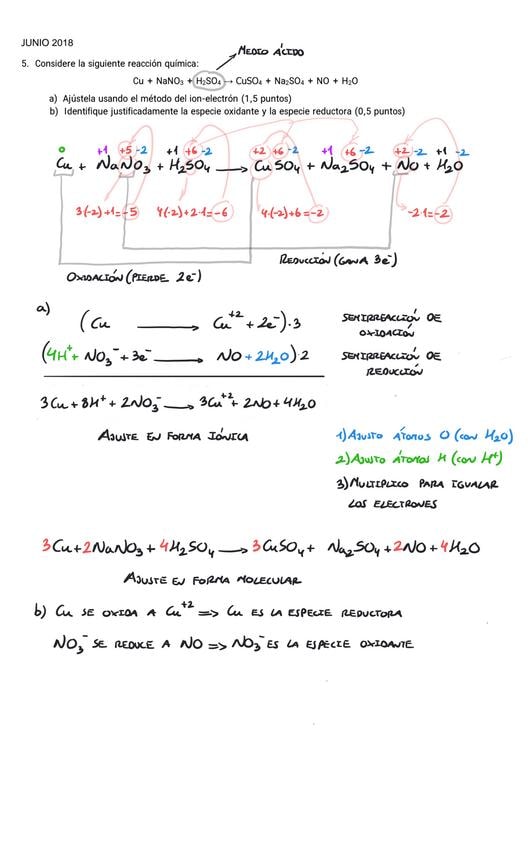 JUNIO 2018
MEDIO ÁCIDO
5. Considere la siguiente reacción química:
Cu + NaNO₃ + H₂SO₄ → CuSO₄ + Na₂SO₄ + NO + H₂O
a) Ajústela usando el método del ion-electrón (1,5 puntos)
b) Identifique justificadamente la especie oxidante y la especie reductora (0,5 puntos)
0 +1 +5 -2 +1 +6 -2 +2 +6 -2 +1 +6 -2 +2 -2 +1 -2
Cu + NaNO₃ + H₂SO₄ → CuSO₄ + Na₂SO₄ + NO + H₂O
3(-2)+1=-5 4(-2)+2·1=-6 4·(-2)+6=-2 -2·1=-2
REDUCCIÓN (GANA 3e⁻)
OXIDACIÓN (PIERDE 2e⁻)
a)
(Cu → Cu⁺² + 2e⁻)·3 SEMIRREACCIÓN DE OXIDACIÓN
(4H⁺ + NO₃⁻ + 3e⁻ → NO + 2H₂O)·2 SEMIRREACCIÓN DE REDUCCIÓN
3Cu + 8H⁺ + 2NO₃⁻ → 3Cu⁺² + 2NO + 4H₂O
AJUSTE EN FORMA IÓNICA
1) AJUSTO ÁTOMOS O (CON H₂O)
2) AJUSTO ÁTOMOS H (CON H⁺)
3) MULTIPLICO PARA IGUALAR
LOS ELECTRONES
3Cu + 2NaNO₃ + 4H₂SO₄ → 3CuSO₄ + Na₂SO₄ + 2NO + 4H₂O
AJUSTE EN FORMA MOLECULAR
b) Cu SE OXIDA A Cu⁺² => Cu ES LA ESPECIE REDUCTORA
NO₃⁻ SE REDUCE A NO => NO₃⁻ ES LA ESPECIE OXIDANTE